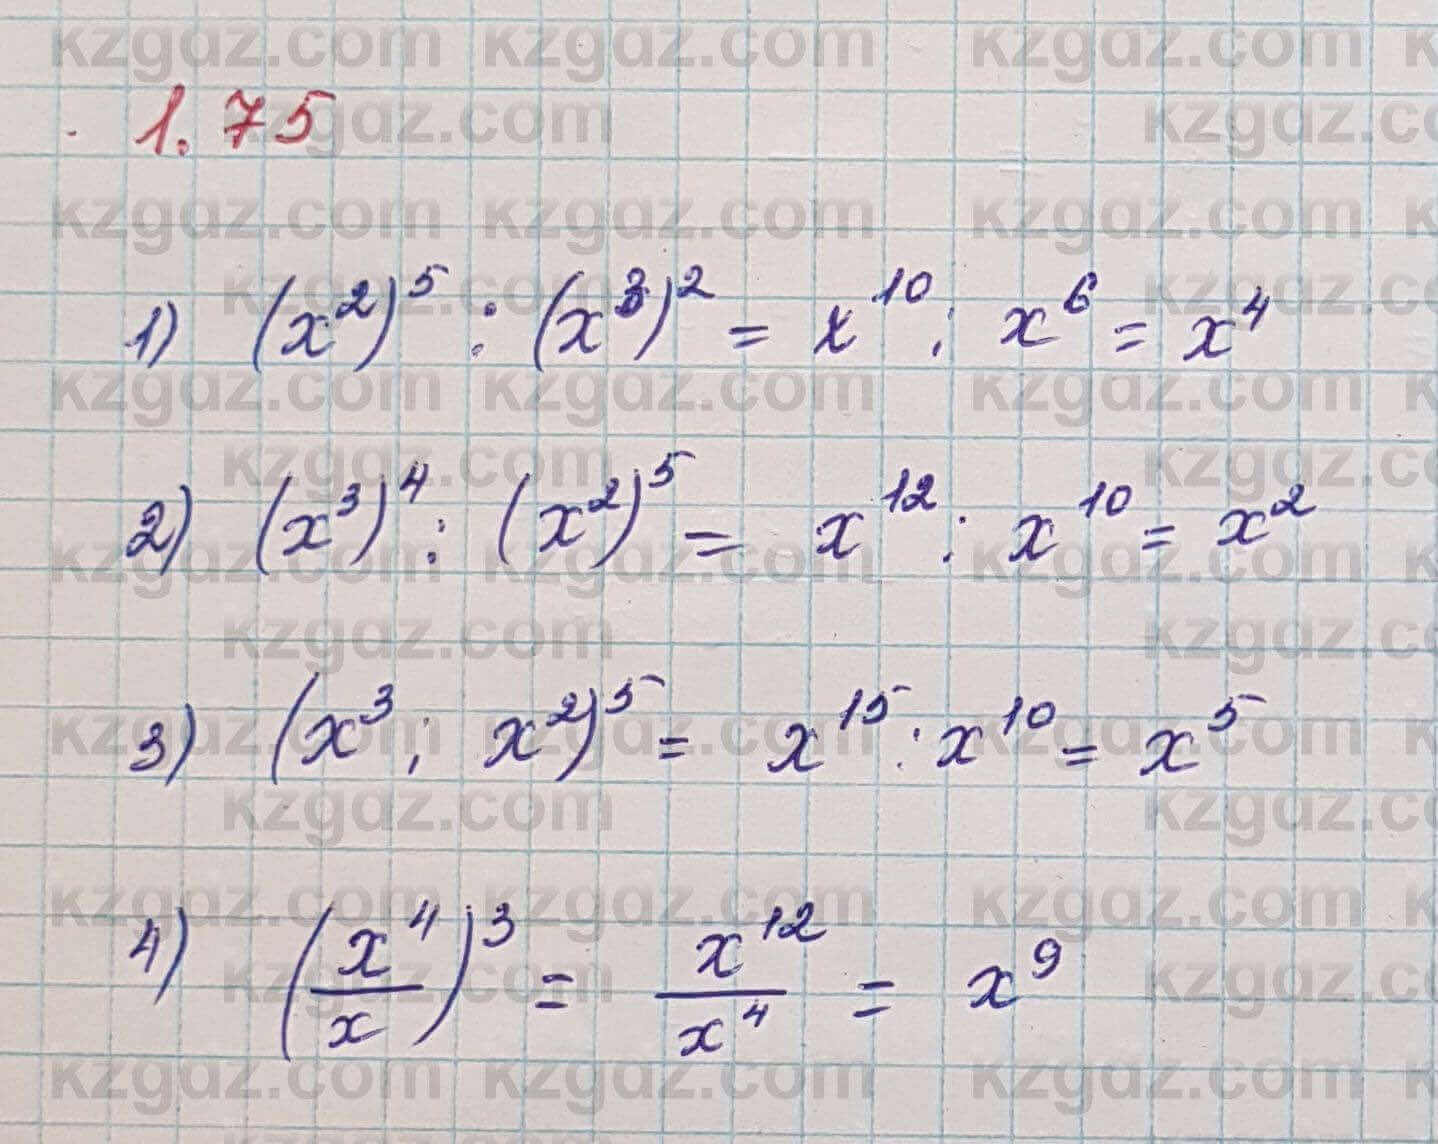 1.75
1) (x²)⁵ : (x³)² = x¹⁰ : x⁶ = x⁴
2) (x³)⁴ : (x²)⁵ = x¹² : x¹⁰ = x²
3) (x³ : x²)⁵ = x¹⁵ : x¹⁰ = x⁵
4) (x⁴/x)³ = x¹²/x⁴ = x⁹
kzgdz.com